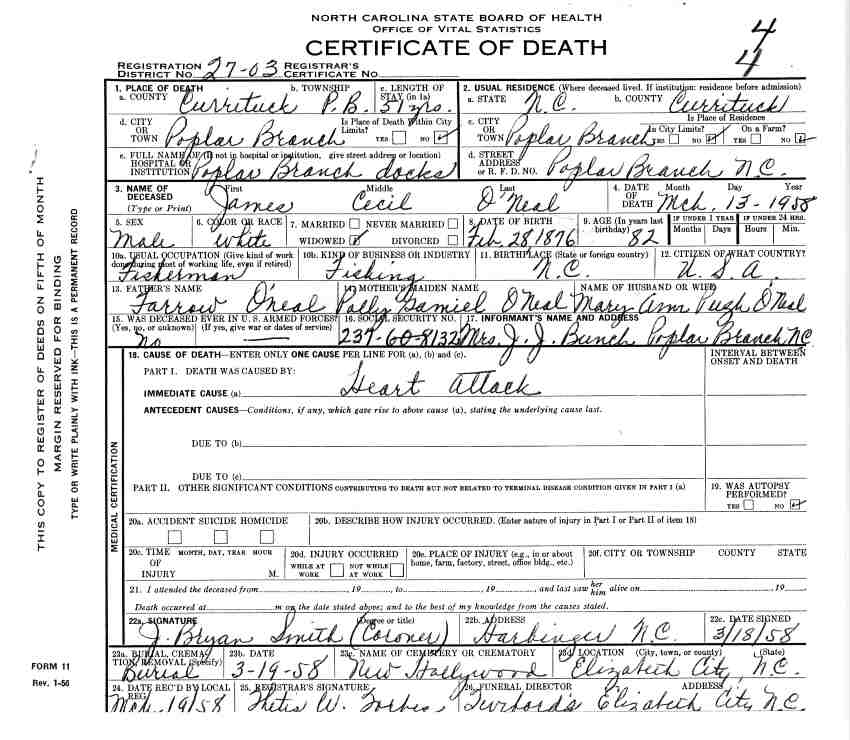 NORTH CAROLINA STATE BOARD OF HEALTH
OFFICE OF VITAL STATISTICS
CERTIFICATE OF DEATH
4
4
REGISTRATION DISTRICT No. 27-03 REGISTRAR'S CERTIFICATE No.
1. PLACE OF DEATH
a. COUNTY Currituck
b. TOWNSHIP P.B.
c. LENGTH OF STAY (in 1a) 51 yrs.
2. USUAL RESIDENCE (Where deceased lived. If institution: residence before admission)
a. STATE N.C. b. COUNTY Currituck
d. CITY OR TOWN Poplar Branch
Is Place of Death Within City Limits? YES NO
c. CITY OR TOWN Poplar Branch
Is Place of Residence
In City Limits? YES NO
On a Farm? YES NO
e. FULL NAME OF (If not in hospital or institution, give street address or location)
HOSPITAL OR INSTITUTION Poplar Branch docks
d. STREET ADDRESS or R. F. D. NO. Poplar Branch N.C.
3. NAME OF DECEASED (Type or Print)
First James Middle Cecil Last O'Neal
4. DATE OF DEATH Month Day Year
Mch. 13-1958
5. SEX Male
6. COLOR OR RACE White
7. MARRIED NEVER MARRIED
WIDOWED DIVORCED
8. DATE OF BIRTH Feb. 28, 1876
9. AGE (In years last birthday) 82
IF UNDER 1 YEAR Months Days
IF UNDER 24 HRS. Hours Min.
10a. USUAL OCCUPATION (Give kind of work done during most of working life, even if retired) Fisherman
10b. KIND OF BUSINESS OR INDUSTRY Fishing
11. BIRTHPLACE (State or foreign country) N.C.
12. CITIZEN OF WHAT COUNTRY? U.S.A.
13. FATHER'S NAME Farrow O'neal
14. MOTHER'S MAIDEN NAME Polly Gamiel O'Neal
NAME OF HUSBAND OR WIFE Mary Ann Pugh O'Neal
15. WAS DECEASED EVER IN U. S. ARMED FORCES?
(Yes, no, or unknown) (If yes, give war or dates of service)
No —
16. SOCIAL SECURITY NO. 237-60-8132
17. INFORMANT'S NAME AND ADDRESS Mrs. J. J. Bunch Poplar Branch NC
18. CAUSE OF DEATH—ENTER ONLY ONE CAUSE PER LINE FOR (a), (b) and (c).
INTERVAL BETWEEN ONSET AND DEATH
PART I. DEATH WAS CAUSED BY:
IMMEDIATE CAUSE (a) Heart Attack
ANTECEDENT CAUSES—Conditions, if any, which gave rise to above cause (a), stating the underlying cause last.
DUE TO (b)
DUE TO (c)
PART II. OTHER SIGNIFICANT CONDITIONS CONTRIBUTING TO DEATH BUT NOT RELATED TO TERMINAL DISEASE CONDITION GIVEN IN PART I (a)
19. WAS AUTOPSY PERFORMED?
YES NO
20a. ACCIDENT SUICIDE HOMICIDE
20b. DESCRIBE HOW INJURY OCCURRED. (Enter nature of injury in Part I or Part II of item 18)
20c. TIME OF INJURY MONTH, DAY, YEAR HOUR M.
20d. INJURY OCCURRED
WHILE AT WORK NOT WHILE AT WORK
20e. PLACE OF INJURY (e.g., in or about home, farm, factory, street, office bldg., etc.)
20f. CITY OR TOWNSHIP COUNTY STATE
21. I attended the deceased from 19 , to 19 , and last saw her him alive on , 19
Death occurred at m on the date stated above; and to the best of my knowledge from the causes stated.
22a. SIGNATURE (Degree or title)
J. Bryan Smith (Coroner)
22b. ADDRESS Harbinger N.C.
22c. DATE SIGNED 3/18/58
23a. BURIAL, CREMATION, REMOVAL (Specify) Burial
23b. DATE 3-19-58
23c. NAME OF CEMETERY OR CREMATORY New Hollywood
23d. LOCATION (City, town, or county) (State)
Elizabeth City, N.C.
24. DATE REC'D BY LOCAL REG. Mch. 19/58
25. REGISTRAR'S SIGNATURE Thetis W. Forbes
26. FUNERAL DIRECTOR ADDRESS
Twiford's Elizabeth City N.C.
THIS COPY TO REGISTER OF DEEDS ON FIFTH OF MONTH
MARGIN RESERVED FOR BINDING
TYPE OR WRITE PLAINLY WITH INK—THIS IS A PERMANENT RECORD
MEDICAL CERTIFICATION
FORM 11
Rev. 1-56